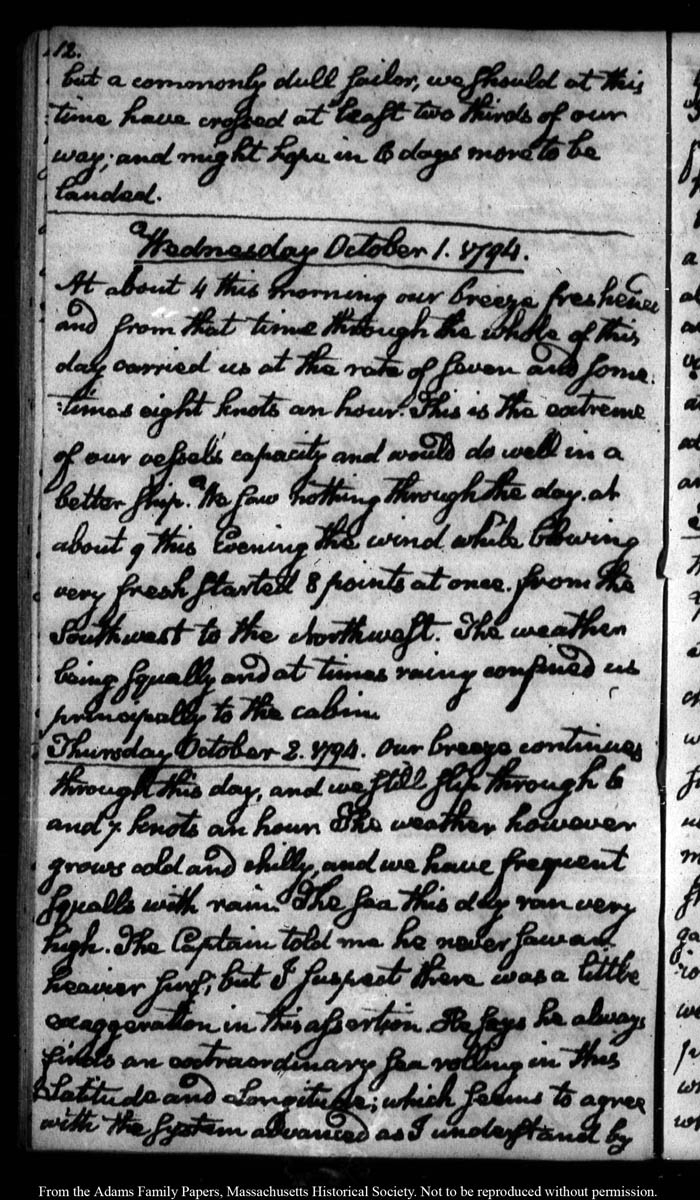 12.
but a commonly dull sailor, we should at this
time have crossed at least two thirds of our
way; and might hope in 6 days more to be
landed.
Wednesday October 1. 1794.
At about 4 this morning our breeze freshened
and from that time through the whole of this
day carried us at the rate of seven and some-
:times eight knots an hour. This is the extreme
of our vessel's capacity and would do well in a
better ship. We saw nothing through the day. at
about 9 this Evening the wind while blowing
very fresh started 8 points at once. from the
Southwest to the Northwest. The weather
being squally and at times rainy confined us
principally to the cabin.
Thursday October 2. 1794. Our breeze continues
through this day, and we still slip through 6
and 7 knots an hour. The weather however
grows cold and chilly, and we have frequent
squalls with rain. The sea this day ran very
high. The Captain told me he never saw a
heavier surf; but I suspect there was a little
exaggeration in this assertion. He says he always
finds an extraordinary sea rolling in this
Latitude and Longitude; which seems to agree
with the system advanced as I understand by
From the Adams Family Papers, Massachusetts Historical Society. Not to be reproduced without permission.